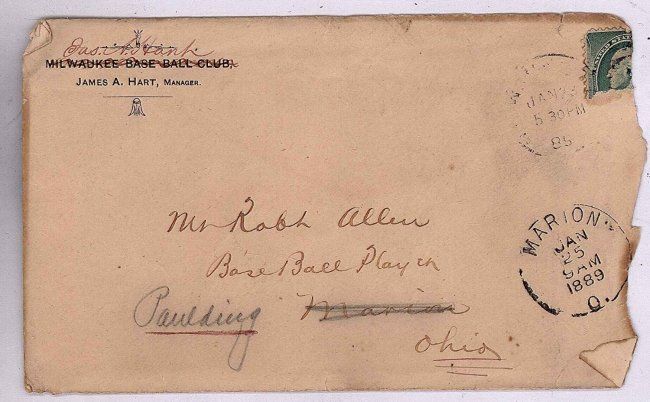 Jas. A. Hart.
MILWAUKEE BASE BALL CLUB,
JAMES A. HART, MANAGER.
UNITED STATES
JAN
5 30 PM
MARION
JAN
25
9 AM
1889
O.
Mr Robt Allen
Base Ball Player
Paulding Marion
Ohio